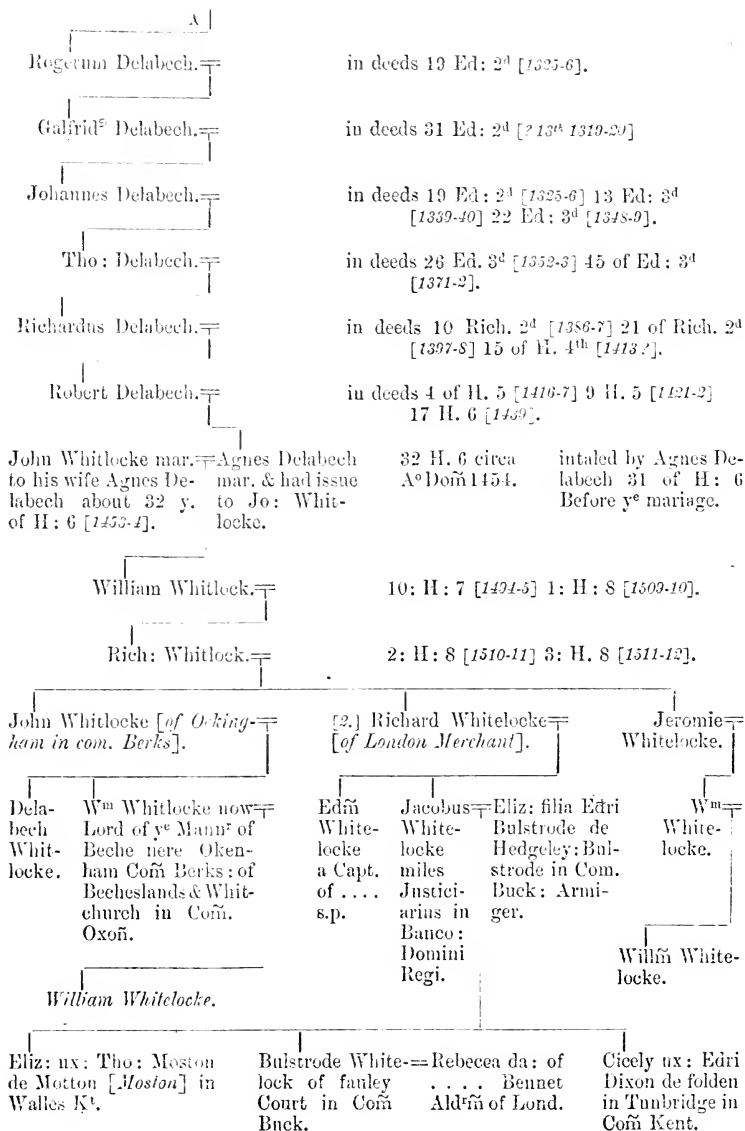 A
Rogerum Delabech. in deeds 19 Ed: 2ᵈ [1325-6].
Galfridˢ Delabech. in deeds 31 Ed: 2ᵈ [? 13ᵗʰ 1319-20]
Johannes Delabech. in deeds 19 Ed: 2ᵈ [1325-6] 13 Ed: 3ᵈ
[1339-40] 22 Ed: 3ᵈ [1348-9].
Tho: Delabech. in deeds 26 Ed. 3ᵈ [1352-3] 45 of Ed: 3ᵈ
[1371-2].
Richardus Delabech. in deeds 10 Rich. 2ᵈ [1386-7] 21 of Rich. 2ᵈ
[1397-8] 15 of H. 4ᵗʰ [1413?].
Robert Delabech. in deeds 4 of H. 5 [1416-7] 9 H. 5 [1421-2]
17 H. 6 [1439].
John Whitlocke mar.
to his wife Agnes De-
labech about 32 y.
of H: 6 [1453-4].
Agnes Delabech
mar. & had issue
to Jo: Whit-
locke.
32 H. 6 circa
Aᵒ Dom̃ 1454.
intaled by Agnes De-
labech 31 of H: 6
Before yᵉ mariage.
William Whitlock. 10: H: 7 [1494-5] 1: H: 8 [1509-10].
Rich: Whitlock. 2: H: 8 [1510-11] 3: H. 8 [1511-12].
John Whitlocke [of Ocking-
ham in com. Berks].
[2.] Richard Whitelocke
[of London Merchant].
Jeromie
Whitelocke.
Dela-
bech
Whit-
locke.
Wᵐ Whitlocke now
Lord of yᵉ Mannʳ of
Beche nere Oken-
ham Com̃ Berks: of
Becheslands & Whit-
church in Com̃.
Oxoñ.
Edm̃
White-
locke
a Capt.
of ....
s.p.
Jacobus
White-
locke
miles
Justici-
arius in
Banco:
Domini
Regi.
Eliz: filia Edri
Bulstrode de
Hedgeley: Bul-
strode in Com.
Buck: Armi-
ger.
Wᵐ
White-
locke.
Willm̃ White-
locke.
William Whitelocke.
Eliz: ux: Tho: Moston
de Motton [Moston] in
Walles Kᵗ.
Bulstrode White-
lock of fanley
Court in Com̃
Buck.
Rebecea da: of
.... Bennet
Aldʳm̃ of Lond.
Cicely ux: Edri
Dixon de folden
in Tunbridge in
Com̃ Kent.